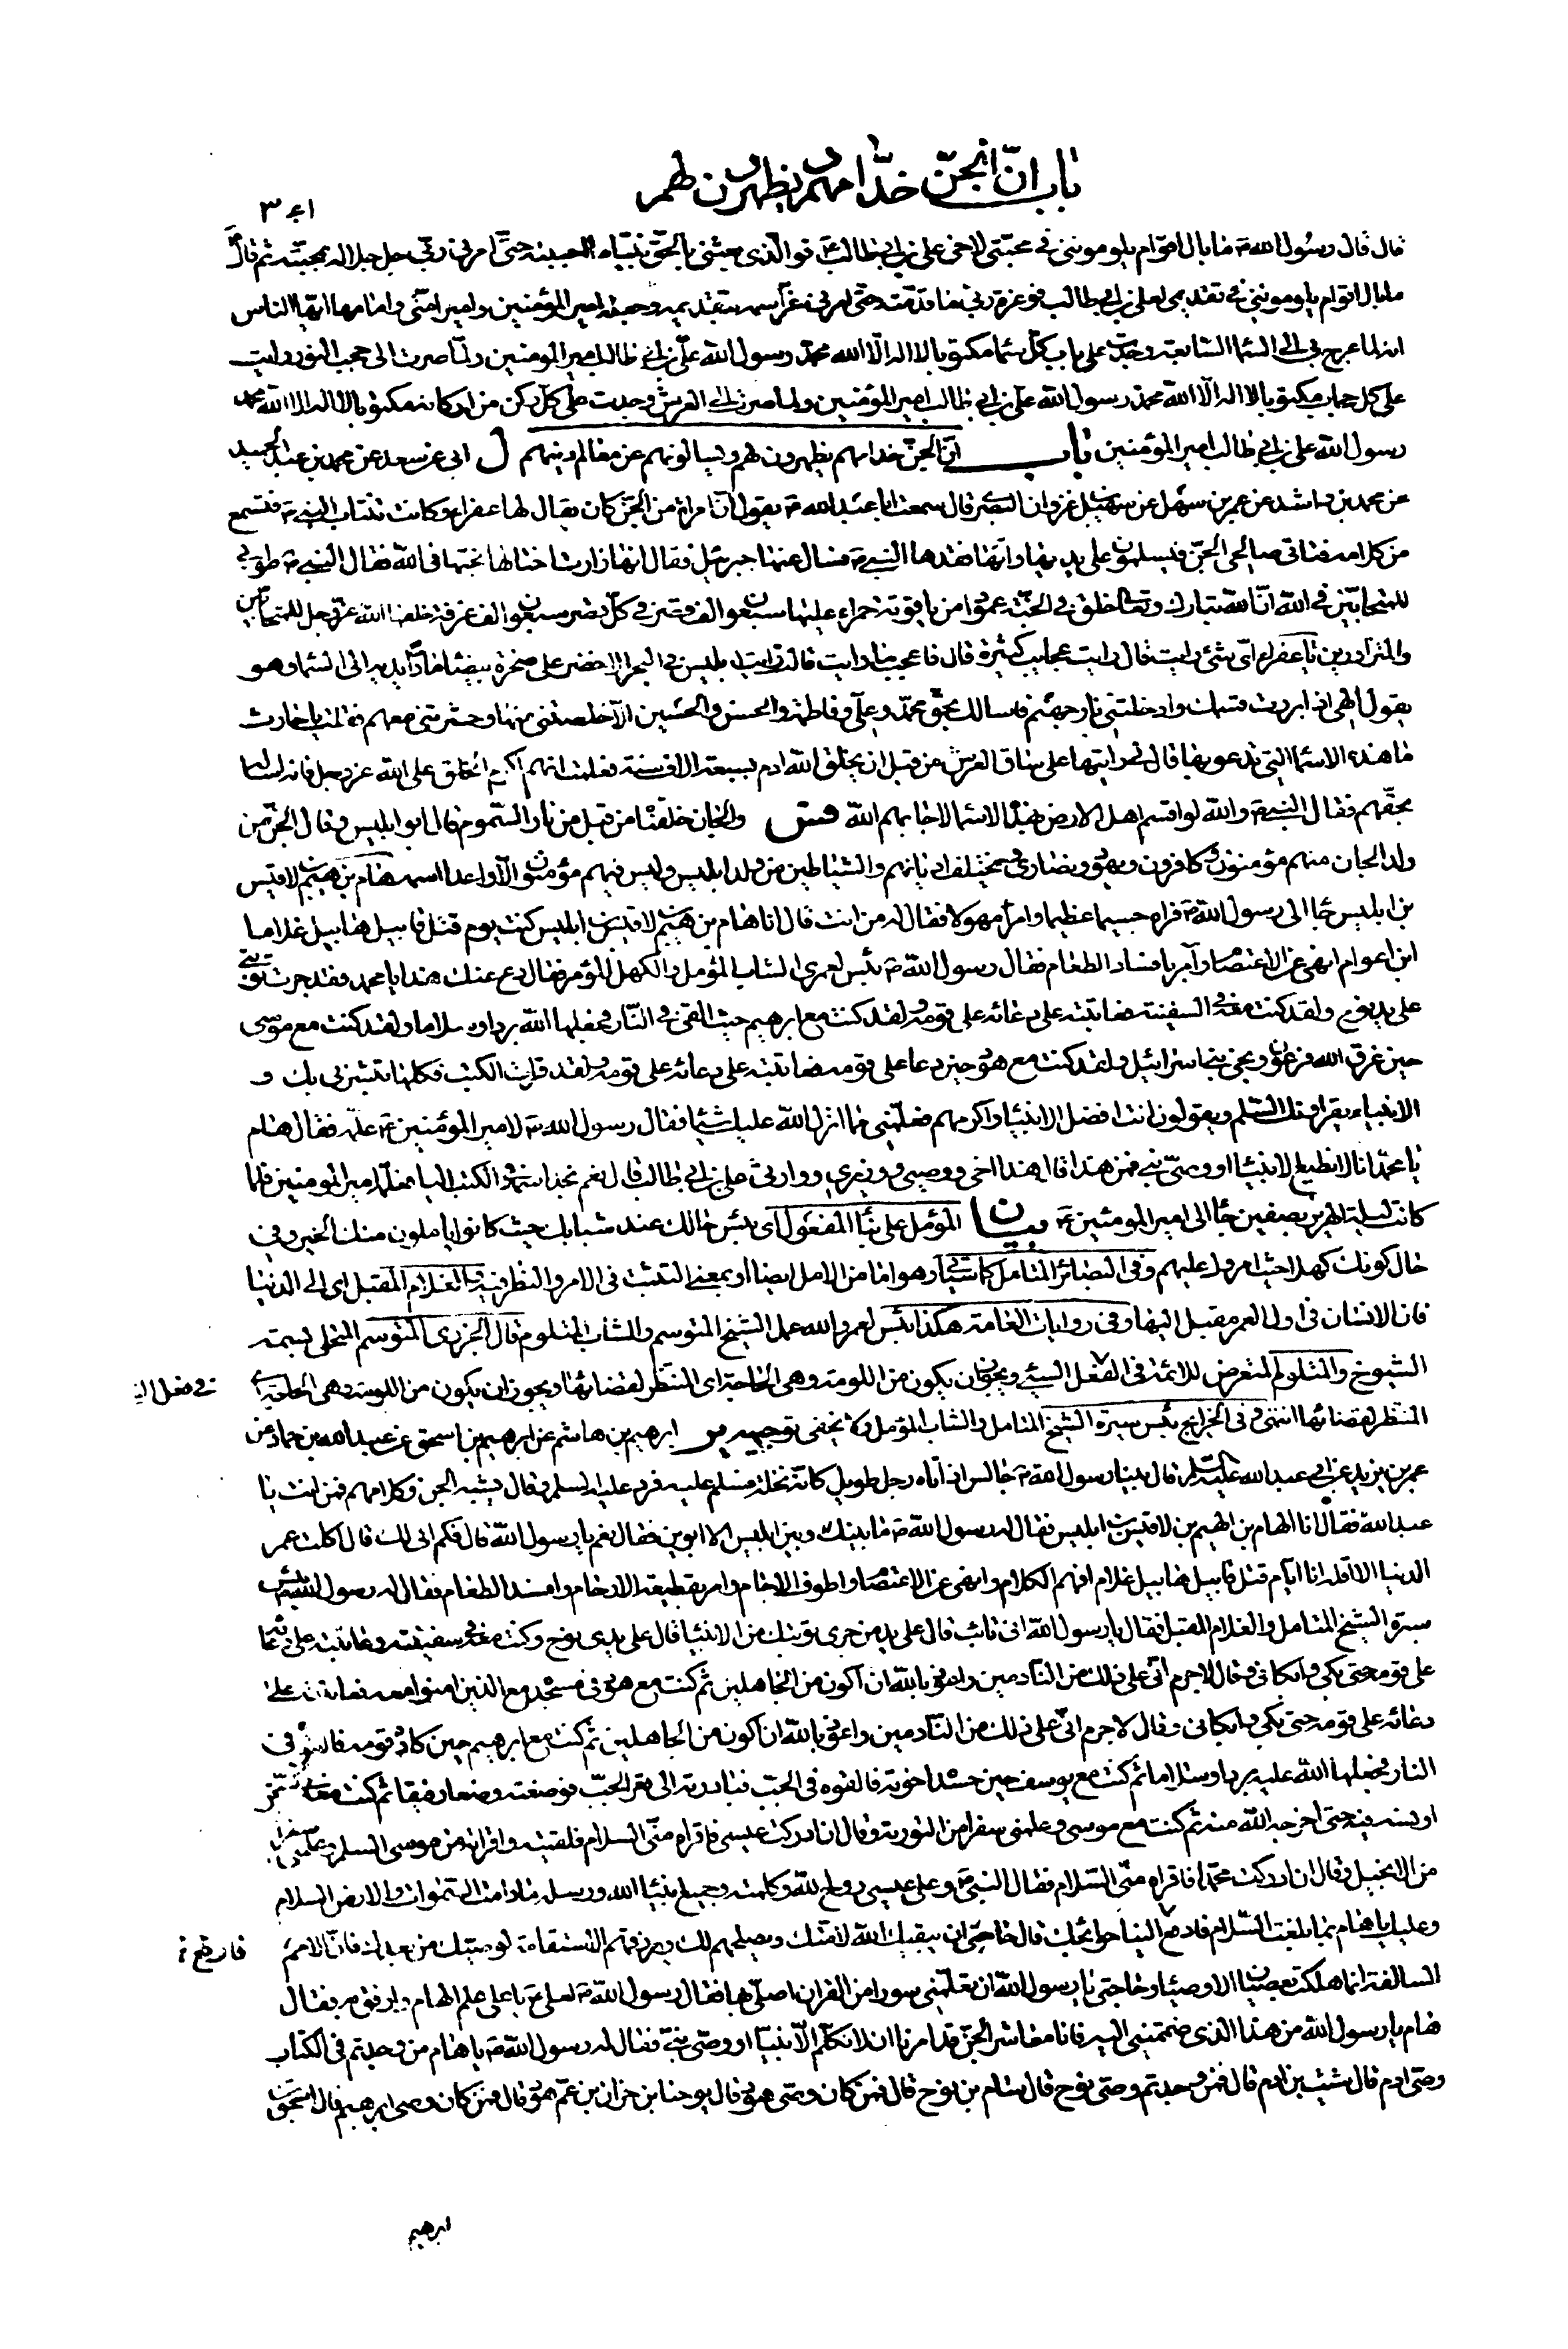 باب انّ الجنّ خدّامهم يظهرون لهم
٣٠١
قال قال رسول الله ص ما بال اقوام يلومونني في محبتي لاخي علي بن ابي طالب ع فو الذي بعثني بالحق نبيا ما احببته حتى امرني ربي جل جلاله بمحبته ثم قال
ما بال اقوام يلومونني في تقديمي لعلي بن ابي طالب فو عزة ربي ما قدمته حتى امرني عز اسمه بتقديمه وجعله امير المؤمنين وامير امتي وامامها ايها الناس
انه لما عرج بي الى السماء السابعة وجدت على باب كل سماء مكتوبا لا اله الا الله محمد رسول الله علي بن ابي طالب امير المؤمنين ولما صرت الى حجب النور رايت
على كل حجاب مكتوبا لا اله الا الله محمد رسول الله علي بن ابي طالب امير المؤمنين ولما صرت الى العرش وجدت على كل ركن من اركانه مكتوبا لا اله الا الله محمد
رسول الله علي بن ابي طالب امير المؤمنين باب انّ الجنّ خدامهم يظهرون لهم ويسالونهم عن معالم دينهم ل ابي عن سعد عن محمد بن عبد الحميد
عن محمد بن راشد عن عمر بن سهل عن سهيل غزوان البصري قال سمعت ابا عبد الله ع يقول ان امراة من الجن كان يقال لها عفراء وكانت تنتاب النبي ص فتسمع
من كلامه فتاتي صالحي الجن فيسلمون على يديها وانها فقدها النبي ص فسال عنها جبرئيل فقال انها زارت اختا لها تحبها في الله فقال النبي ص طوبى
للمتحابين في الله ان الله تبارك وتعالى خلق في الجنة عمودا من ياقوتة حمراء عليها سبعون الف قصر في كل قصر سبعون الف غرفة خلقها الله عز وجل للمتحابين
والمتزاورين يا عفراء اي شئ رايت قال رايت عجايب كثيرة قال فاعجب ما رايت قالت رايت ابليس في البحر الاخضر على صخرة بيضاء مادا يديه الى السماء وهو
يقول الهي اذا بررت قسمك وادخلتني نار جهنم فاسالك بحق محمد وعلي وفاطمة والحسن والحسين الا خلصتني منها وحشرتني معهم فقلت يا حارث
ما هذه الاسماء التي تدعو بها قال لي رايتها على ساق العرش من قبل ان يخلق الله ادم بسبعة الاف سنة فعلمت انهم اكرم الخلق على الله عز وجل فانا اساله
بحقهم فقال النبي ص والله لو اقسم اهل الارض بهذه الاسماء لاجابهم الله فس والجان خلقناه من قبل من نار السموم قال ابو ابليس وقال الجن من
ولد الجان منهم مؤمنون وكافرون ويهود ونصارى ويختلف اديانهم والشياطين من ولد ابليس وليس فيهم مؤمنون الا واحدا اسمه هام بن هيم بن لاقيس
بن ابليس جاء الى رسول الله ص فراه جسيما عظيما وامرا مهولا فقال له من انت قال انا هام بن هيم بن لاقيس بن ابليس كنت يوم قتل قابيل هابيل غلاما
ابن اعوام انهى عن الاعتصام وآمر بافساد الطعام فقال رسول الله ص بئس لعمري الشاب المؤمل والكهل المؤمر فقال دع عنك هذا يا محمد فقد جرت توبتي
على يد نوح ولقد كنت معه في السفينة فعاتبته على دعائه على قومه ولقد كنت مع ابرهيم حيث القي في النار فجعلها الله بردا وسلاما ولقد كنت مع موسى
حين غرق الله فرعون ونجى بني اسرائيل ولقد كنت مع هود حين دعا على قومه فعاتبته على دعائه على قومه ولقد قرات الكتب فكلها تبشرني بك و
الانبياء يقراونك السلم ويقولون انت افضل الانبياء واكرمهم فعلمني مما انزل الله عليك شيئا فقال رسول الله ص لامير المؤمنين ع علمه فقال هام
يا محمد انا لا نطيع الا نبيا او وصي نبي فمن هذا قال هذا اخي ووصيي ووزيري ووارثي علي بن ابي طالب قال نعم نجد اسمه في الكتب اليا فعلمه امير المؤمنين فلما
كانت ليلة الهرير بصفين جاء الى امير المؤمنين ع بيان المؤمل على بناء المفعول اي بئس حالك عند شبابك حيث كانوا ياملون منك الخير وفي
حال كونك كهلا حيث امروك عليهم وفي البصائر المتامل كما سياتي وهو اما من الامل ايضا او بمعنى التثبت في الامر والنظر فيه والغلام المقبل اي الى الدنيا
فان الانسان في اول العمر مقبل اليها وفي روايات العامة هكذا بئس لعمر الله عمل الشيخ المتوسم والشاب المتلوم قال الجزري المتوسم المتحلي بسمة
الشيوخ والمتلوم المتعرض للائمة في الفعل السيئ ويجوز ان يكون من اللومة وهي الحاجة اي المنتظر لقضائها ويجوز ان يكون من اللومة وهي الحاجة اي
المنتظر لقضائها انتهى وفي الخرايج بئس سيرة الشيخ المتامل والشاب المؤمل ولا يخفى توجيهه ير ابرهيم بن هاشم عن ابرهيم بن اسحق عن عبد الله بن حماد عن
عمر بن يزيد عن ابي عبد الله عليه السلم قال بينا رسول الله ص جالس اذ اتاه رجل طويل كانه نخلة فسلم عليه فرد عليه السلم فقال يشبه الجن وكلامهم فمن انت يا
عبد الله فقال انا الهام بن الهيم بن لاقيس بن ابليس فقال له رسول الله ص ما بينك وبين ابليس الا ابوين فقال نعم يا رسول الله قال فكم اتى لك قال اكلت عمر
الدنيا الا اقله انا ايام قتل قابيل هابيل غلام افهم الكلام وانهى عن الاعتصام واطوف الاجام وامر بقطيعة الارحام وافسد الطعام فقال له رسول الله ص بئس
سيرة الشيخ المتامل والغلام المقبل فقال يا رسول الله اني تائب قال على يد من جرى توبتك من الانبيا قال على يدي نوح وكنت معه في سفينته وعاتبته على دعائه
على قومه حتى بكى وابكاني وقال لا جرم اني على ذلك من النادمين واعوذ بالله ان اكون من الجاهلين ثم كنت مع هود في مسجده مع الذين امنوا معه فعاتبته على
دعائه على قومه حتى بكى وابكاني وقال لا جرم اني على ذلك من النادمين واعوذ بالله ان اكون من الجاهلين ثم كنت مع ابرهيم حين كاده قومه فالقوه في
النار فجعلها الله عليه بردا وسلاما ثم كنت مع يوسف حين حسده اخوته فالقوه في الجب فبادرته الى قعر الجب فوضعته وضعا رفيقا ثم كنت معه في السجن
اونسه فيه حتى اخرجه الله منه ثم كنت مع موسى وعلمني سفرا من التورية وقال ان ادركت عيسى فاقراه مني السلام فلقيته واقراته من موسى السلم وعلمني سفرا
من الانجيل وقال ان ادركت محمدا فاقراه مني السلام فقال النبي ص وعلى عيسى روح الله وكلمته وجميع انبياء الله ورسله ما دامت السموات والارض السلام
وعليك يا هام بما بلغت السلام فادفع الينا حوائجك قال حاجتي ان يبقيك الله لامتك ويصلحهم لك ويرزقهم الاستقامة لوصيك من بعدك فان الامم
السالفة انما هلكت بعصيان الاوصياء وحاجتي يا رسول الله ان تعلمني سورا من القران اصلي بها فقال رسول الله ص لعلي ع يا علي علم الهام وارفق به فقال
هام يا رسول الله من هذا الذي ضممتني اليه فانا معاشر الجن قد امرنا ان لا نكلم الا نبيا او وصي نبي فقال له رسول الله ص يا هام من وجدتم في الكتاب
وصي ادم قال شيث بن ادم قال فمن وجدتم وصي نوح قال سام بن نوح قال فمن كان وصي هود قال يوحنا بن حزان بن عم هود قال فمن كان وصي ابرهيم قال اسحق
ابرهيم